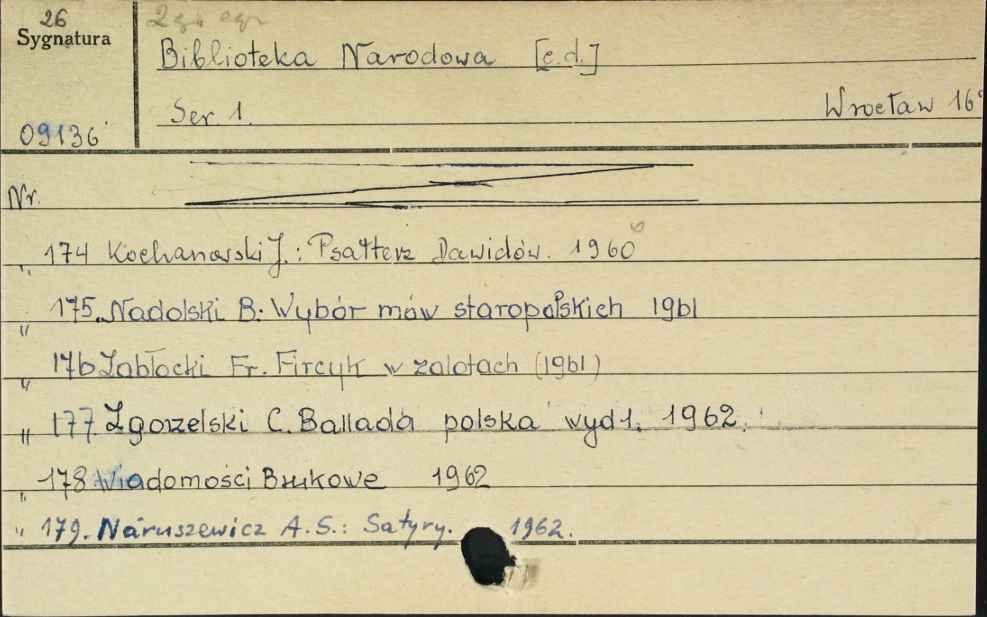 26
Sygnatura
2gi egz
Biblioteka Narodowa [c.d.]
Ser. 1.
Wrocław 16°
09136
Nr.
" 174 Kochanowski J.: Psałterz Dawidów. 1960
" 175. Nadolski B. Wybór mów staropolskich 1961
" 176 Zabłocki Fr. Fircyk w zalotach (1961)
" 177. Zgorzelski C. Ballada polska wyd 1. 1962.
" 178 Wiadomości Brukowe 1962
" 179. Naruszewicz A.S.: Satyry. 1962.